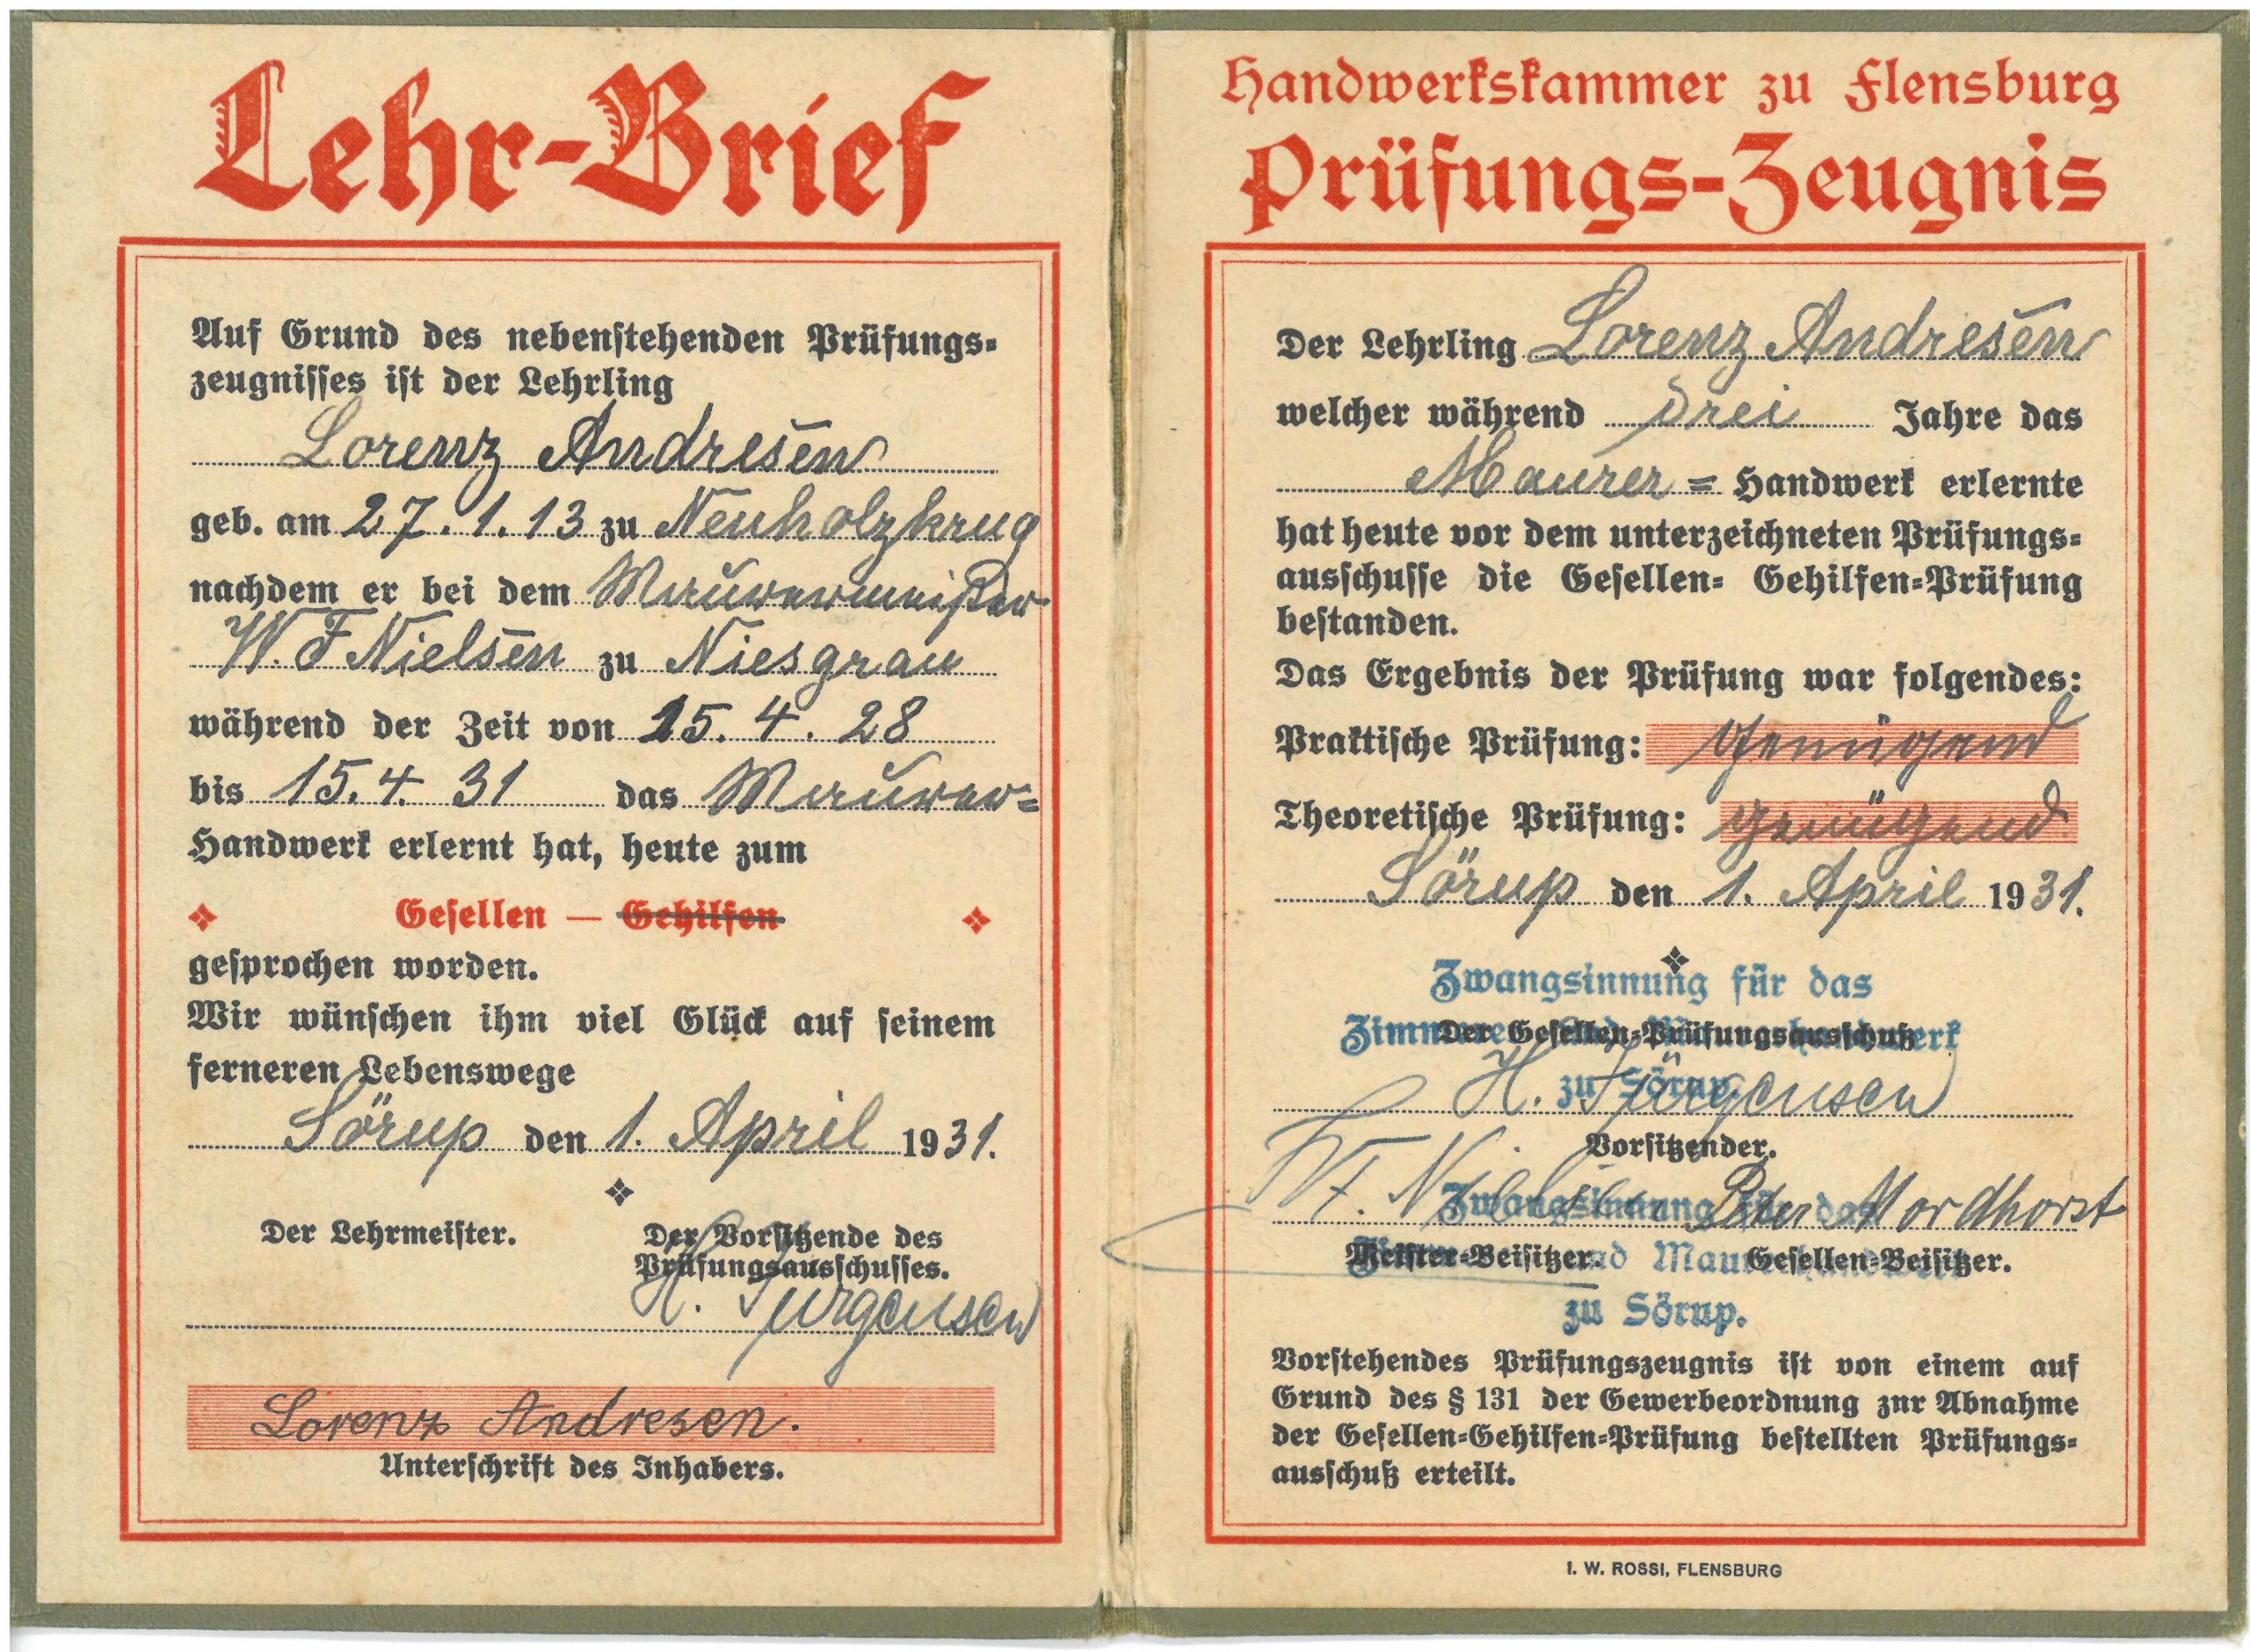 Lehr-Brief
Auf Grund des nebenstehenden Prüfungs-
zeugnisses ist der Lehrling
Lorenz Andresen
geb. am 27. 1. 13 zu Neuholzkrug
nachdem er bei dem Maurermeister
W. F Nielsen zu Niesgrau
während der Zeit von 15. 4. 28
bis 15. 4. 31 das Maurer-
Handwerk erlernt hat, heute zum
Gesellen — Gehilfen
gesprochen worden.
Wir wünschen ihm viel Glück auf seinem
ferneren Lebenswege
Sörup den 1. April 1931.
Der Lehrmeister. Der Vorsitzende des
Prüfungsausschusses.
H. Jürgensen
Lorenz Andresen.
Unterschrift des Inhabers.
Handwerkskammer zu Flensburg
Prüfungs-Zeugnis
Der Lehrling Lorenz Andresen
welcher während drei Jahre das
Maurer- Handwerk erlernte
hat heute vor dem unterzeichneten Prüfungs-
ausschusse die Gesellen- Gehilfen-Prüfung
bestanden.
Das Ergebnis der Prüfung war folgendes:
Praktische Prüfung: Genügend
Theoretische Prüfung: genügend
Sörup den 1. April 1931.
Zwangsinnung für das
Zimmer- und Maurerhandwerk
Der Gesellen-Prüfungsausschuß
zu Sörup.
H. Jürgensen
Vorsitzender.
W F. Nielsen Peter Mordhorst
Zwangsinnung für das
Meister-Beisitzer. Gesellen-Beisitzer.
Zimmer- und Maurerhandwerk
zu Sörup.
Vorstehendes Prüfungszeugnis ist von einem auf
Grund des § 131 der Gewerbeordnung zur Abnahme
der Gesellen-Gehilfen-Prüfung bestellten Prüfungs-
ausschuß erteilt.
I. W. ROSSI, FLENSBURG